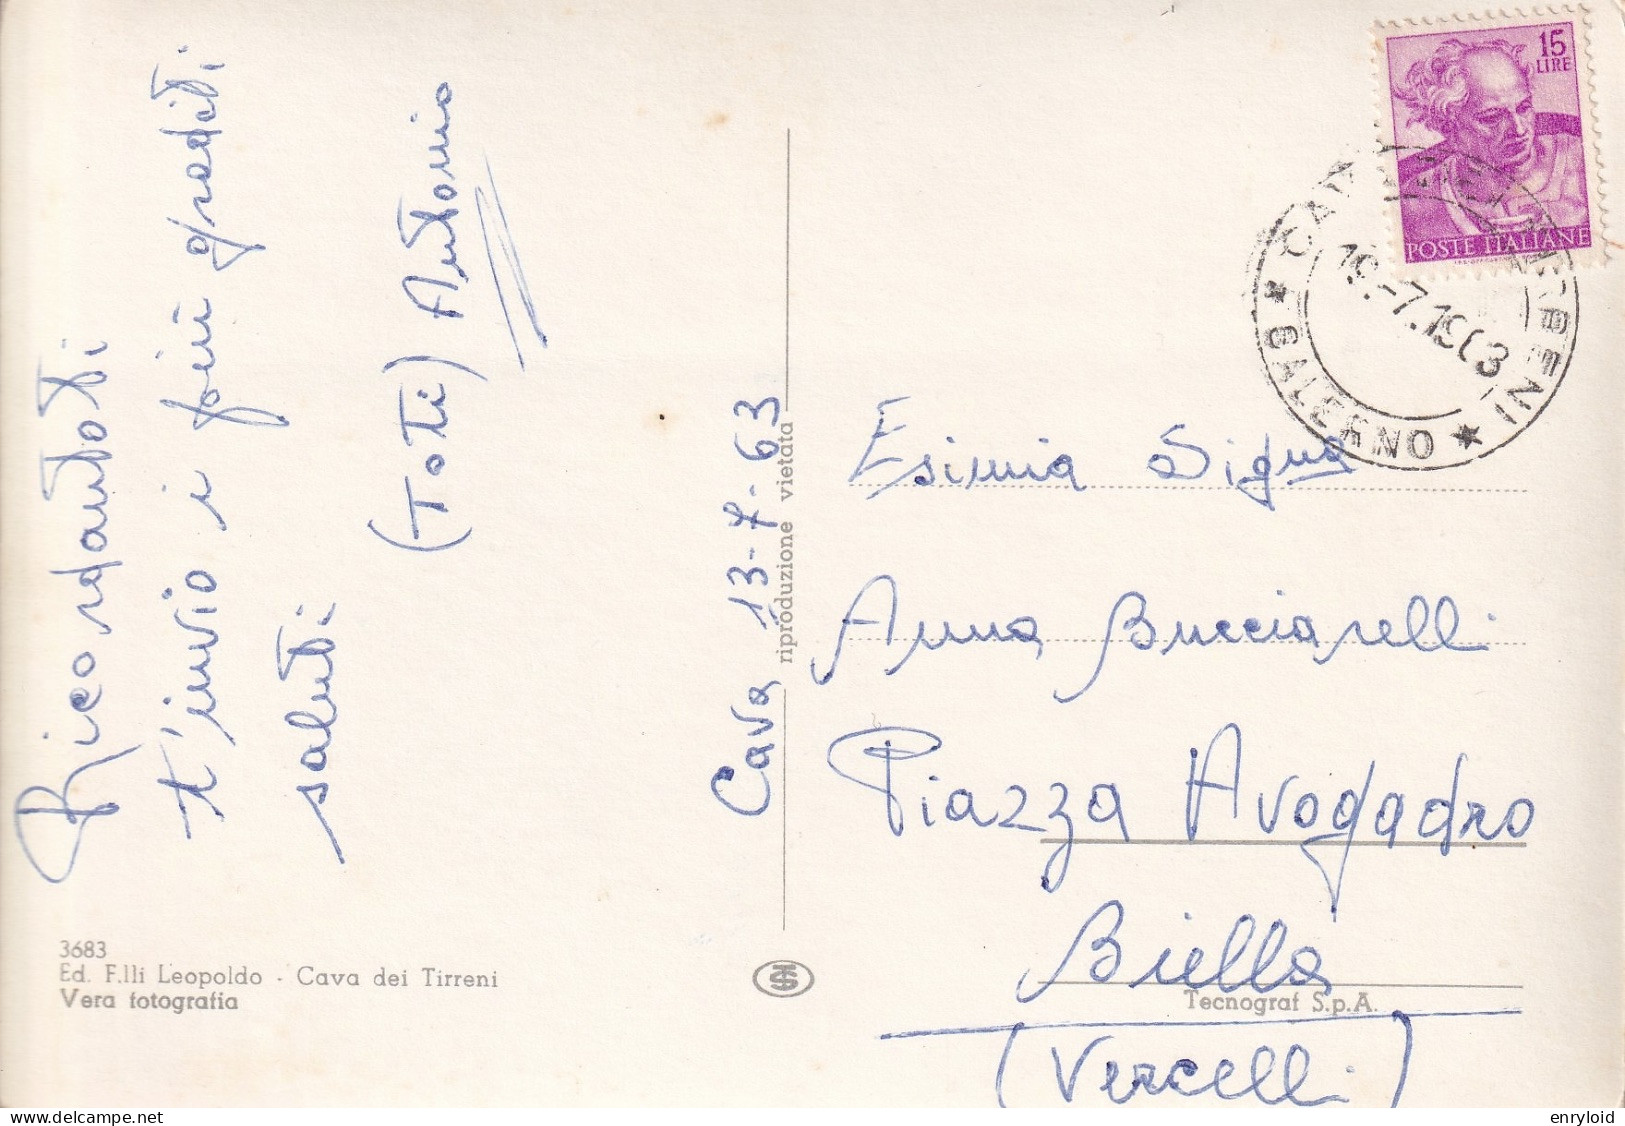 Ricordandoti
t'invio i più graditi
saluti
(Toti) Antonio
Cava 13-7-63
riproduzione vietata
3683
Ed. F.lli Leopoldo - Cava dei Tirreni
Vera fotografia
15
LIRE
POSTE ITALIANE
CAVA DEI TIRRENI
19.-7.1963
★ SALERNO ★
Esimia Signa
Anna Bucciarelli
Piazza Avogadro
Biella
Tecnograf S.p.A.
(Vercelli)
enryloid